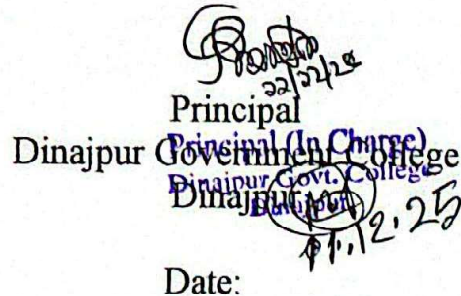 ২২/১২/২৫
Principal
Principal (In Charge)
Dinajpur Government College
Dinajpur Govt. College
Dinajpur
Dinajpur
12.25
Date: